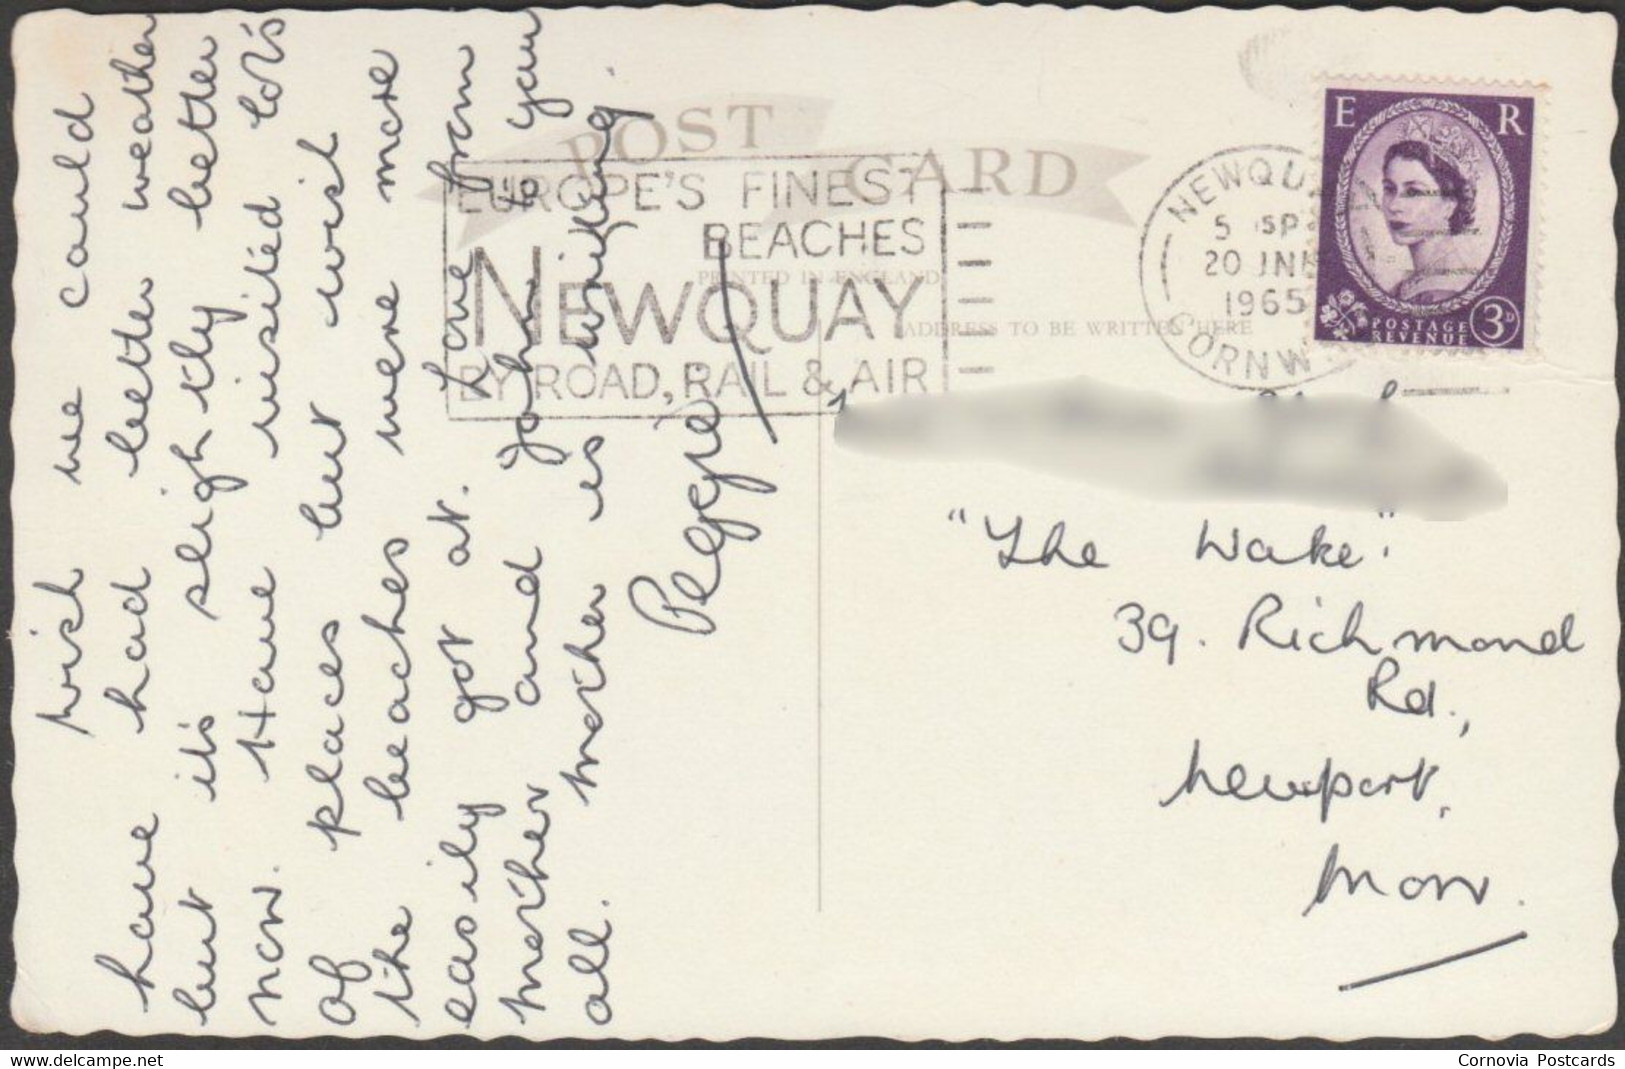 Wish we could
have had better weather
but it's slightly better
now. Have visited lot's
of places but wish
the beaches were more
easily got at. Love from
mother and John to you
all. mother is writing.
Peggie
POST CARD
EUROPE'S FINEST
BEACHES
NEWQUAY
BY ROAD, RAIL & AIR
PRINTED IN ENGLAND
ADDRESS TO BE WRITTEN HERE
NEWQUAY
5 15 P
20 JNE
1965
CORNW
E R
POSTAGE
REVENUE
3D
"The Wake".
39. Richmond
Rd.,
Newport,
Mon.
www.delcampe.net
Cornovia Postcards